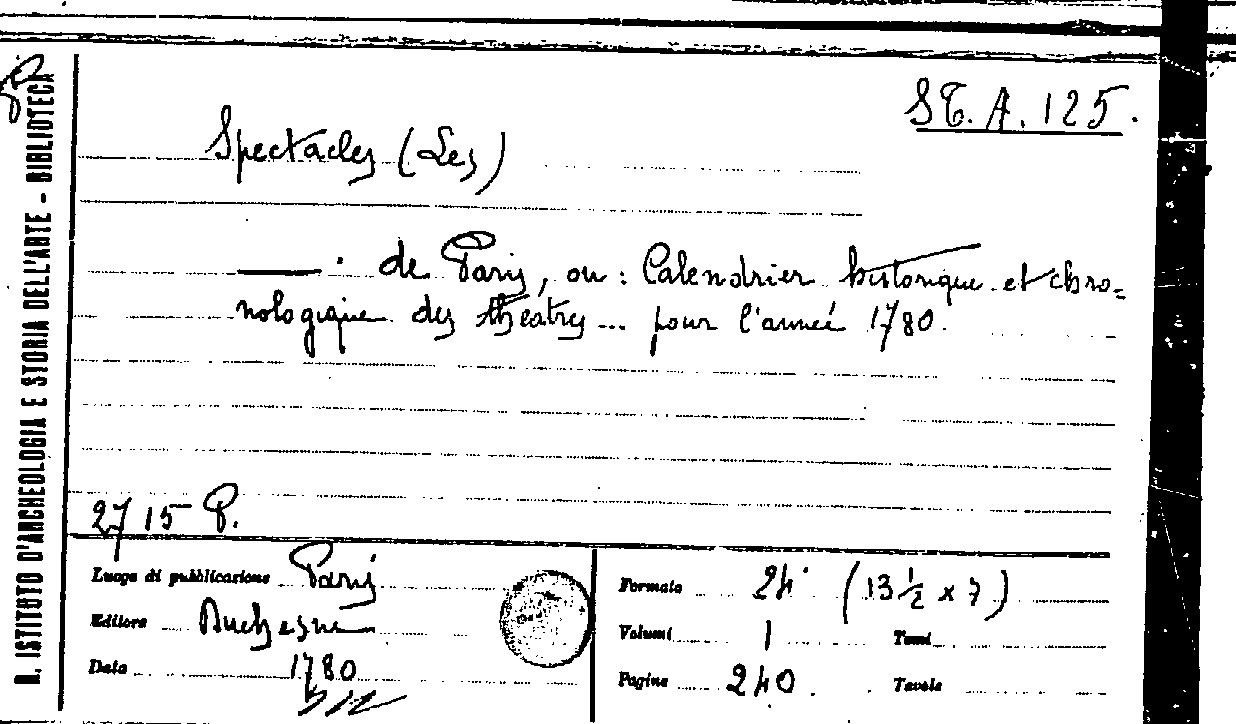 R. ISTITUTO D'ARCHEOLOGIA E STORIA DELL'ARTE - BIBLIOTECA
ST. A. 125.
Spectacles (Les)
——. de Paris, ou : Calendrier historique et chro=
nologique des théatres ... pour l'année 1780.
2715 P.
Luogo di pubblicazione Paris
Editore Duchesne
Data 1780
Formato 24° (13 ½ x 7)
Volumi 1 Tomi
Pagine 240. Tavole